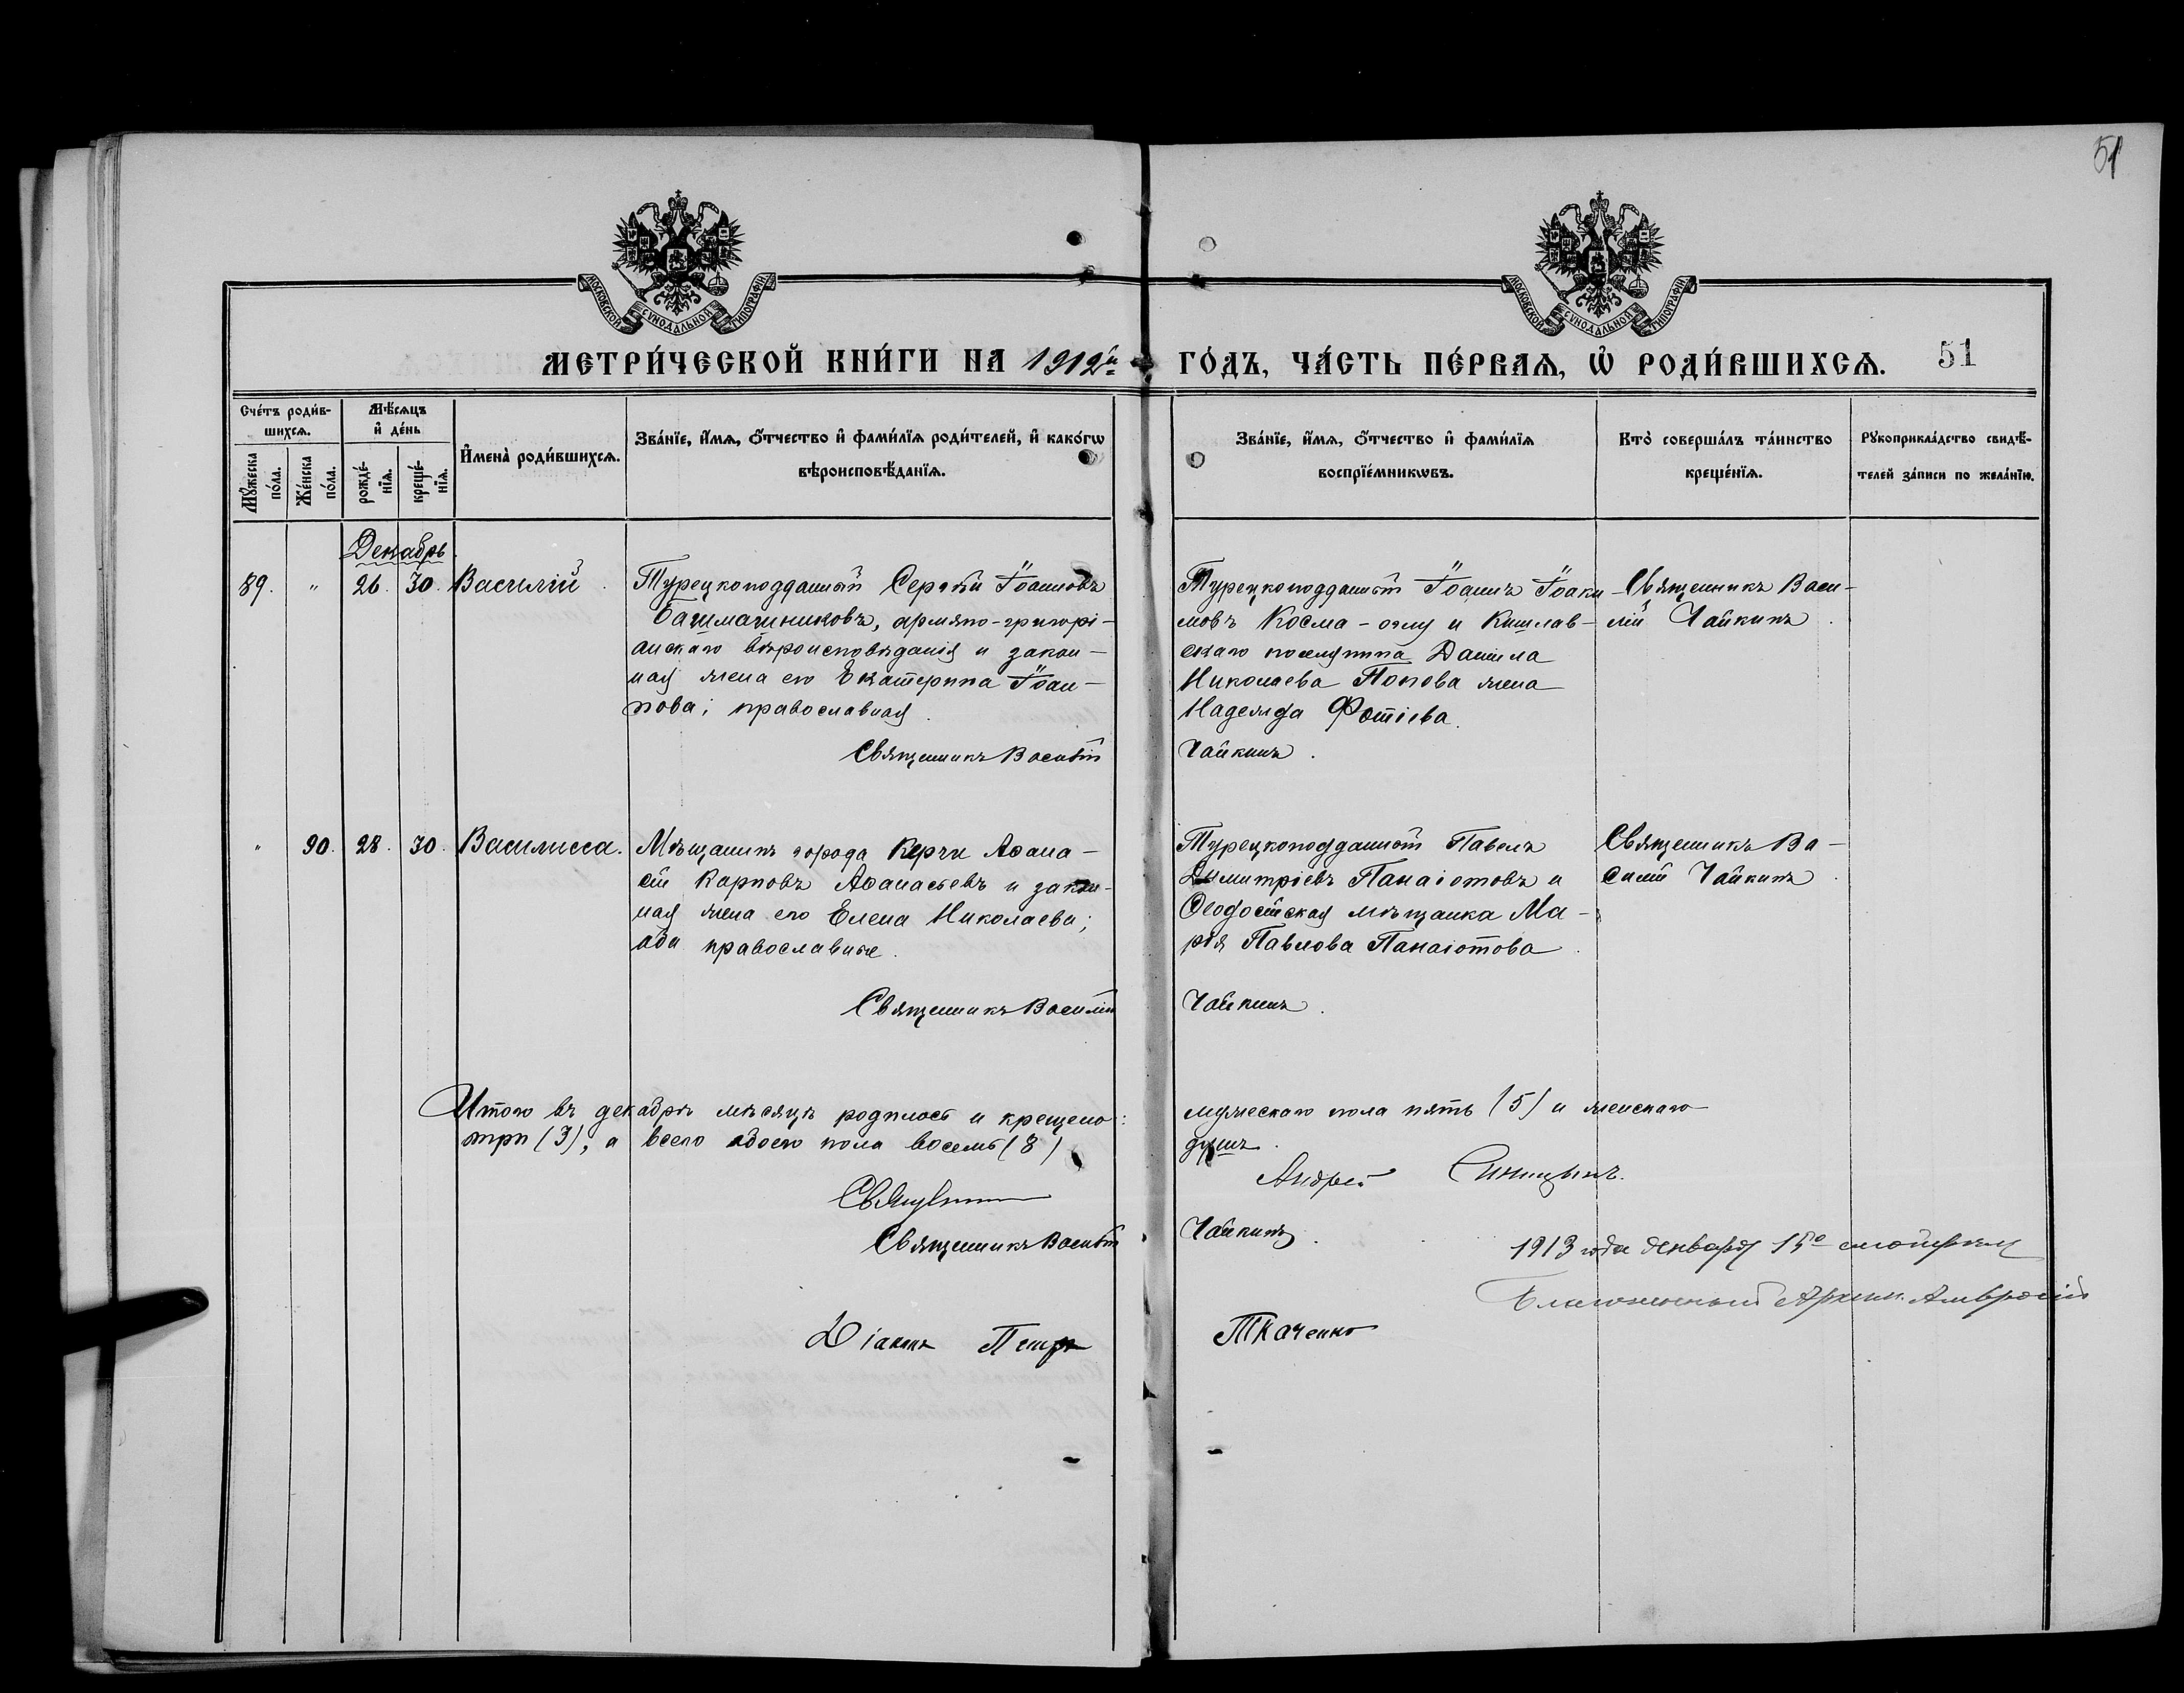 51
МОСКОВСКОЙ СѴНОДАЛЬНОЙ ТИПОГРАФІИ
МОСКОВСКОЙ СѴНОДАЛЬНОЙ ТИПОГРАФІИ
МЕТРИ́ЧЕСКОЙ КНИ́ГИ НА 1912й ГО́ДЪ, ЧА́СТЬ ПЕ́РВАѦ, Ѡ҆ РОДИ́ВШИХСѦ. 51
Сче́тъ роди́в-
шихсѧ.
Мꙋ́жеска по́ла.
Же́нска по́ла.
Мѣ́сѧцъ
и҆ де́нь
рожде́-
нїѧ.
креще́-
нїѧ.
И҆мена̀ роди́вшихсѧ.
Зва́нїе, и҆́мѧ, ѻ҆́тчество и҆ фами́лїѧ роди́телей, и҆ како́гѡ
вѣроисповѣ́данїѧ.
Зва́нїе, и҆́мѧ, ѻ҆́тчество и҆ фами́лїѧ
воспрїе́мникѡвъ.
Кто̀ соверша́лъ та́инство
креще́нїѧ.
Рꙋкоприкла́дство свидѣ́-
телей за́писи по жела́нїю.
Декабрь
89. " 26. 30. Василій
Турецкоподданный Сергѣй Іоанновъ
Башмачниковъ, армяно-григорі-
анскаго вѣроисповѣданія и закон-
ная жена его Екатерина Іоан-
нова; православная.
Священникъ Василій
Турецкоподданный Іоаннъ Іоаки-
мовъ Косма-оглу и Кишлав-
скаго поселянина Даніила
Николаева Попова жена
Надежда Фотіева.
Чайкинъ.
Священникъ Васи-
лій Чайкинъ.
" 90. 28. 30. Василисса.
Мѣщанинъ города Керчи Аѳана-
сій Карповъ Аѳанасьевъ и закон-
ная жена его Елена Николаева;
оба православные.
Священникъ Василій
Турецкоподданный Павелъ
Димитріевъ Панаіотовъ и
Ѳеодосійская мѣщанка Ма-
рія Павлова Панаіотова.
Чайкинъ.
Священникъ Ва-
силій Чайкинъ.
Итого въ декабрѣ мѣсяцѣ родилось и крещено: мужескаго пола пять (5) и женскаго
три (3); а всего обоего пола восемь (8) душъ.
Священникъ Андрей Синицынъ.
Священникъ Василій Чайкинъ.
1913 года Января 15º
Архим. Амвросій
Діаконъ Петръ Ткаченко